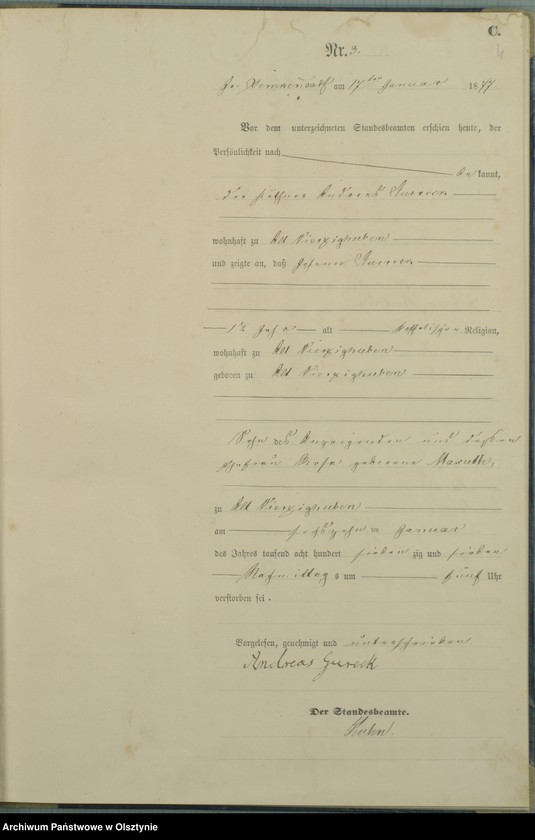 C.
4
Nr. 3.
am 17ten Januar 1877
Vor dem unterzeichneten Standesbeamten erschien heute, der
Persönlichkeit nach
be kannt,
der Andreas Gureck
wohnhaft zu Alt Vierzighuben
und zeigte an, daß Johann Gureck
12 Jahr alt katholischer Religion,
wohnhaft zu Alt Vierzighuben
geboren zu Alt Vierzighuben
Sohn des Anzeigenden und dessen
Ehefrau Rosa geborene
zu Alt Vierzighuben
am sechszehn ten Januar
des Jahres tausend acht hundert sieben zig und sieben
Nachmittag s um fünf Uhr
verstorben sei.
Vorgelesen, genehmigt und unterschrieben.
Andreas Gureck
Der Standesbeamte.
Archiwum Państwowe w Olsztynie